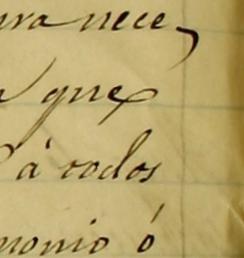 ura nece,
que
á todos
monio ó